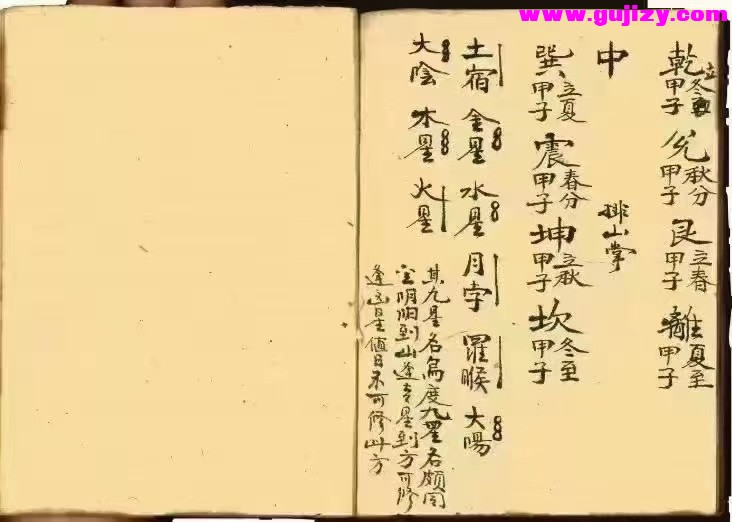 www.gujizy.com
乾立冬甲子 兊秋分甲子 艮立春甲子 離夏至甲子
中 排山掌
巽立夏甲子 震春分甲子 坤立秋甲子 坎冬至甲子
土宿 金星 水星 月孛 羅睺 大陽
大陰 木星 火星
其九星名為度九星名頗同
阴阳到山逢吉星到方可修
逢凶星值日不可修此方